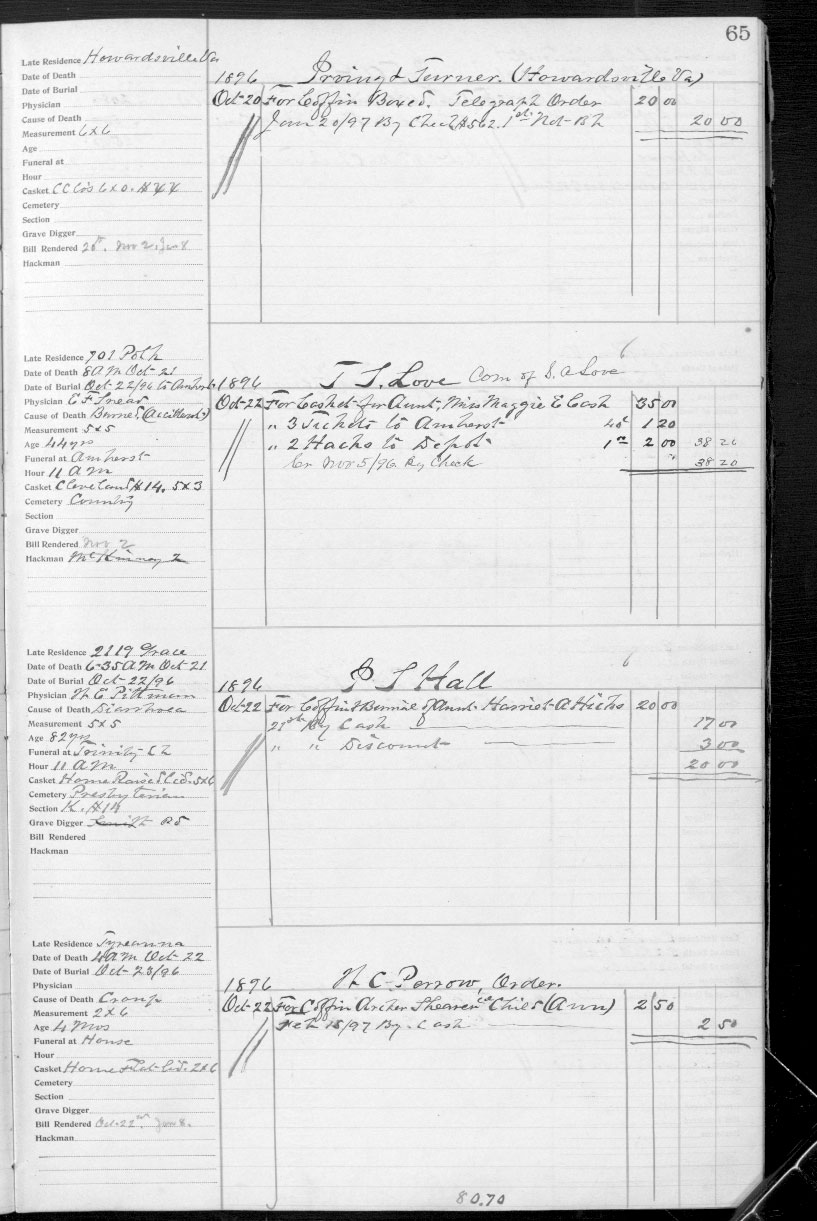 65
Late Residence Howardsville Va
Date of Death
Date of Burial
Physician
Cause of Death
Measurement 6x6
Age
Funeral at
Hour
Casket CCCo's 6x0.
Cemetery
Section
Grave Digger
Bill Rendered 20th. Nov 2. Jan 8
Hackman
1896 Irving & Turner. (Howardsville Va)
Oct 20 For Coffin Boxed. Telegraph Order 20 00
Jan 20/97 By Check #562. 1st Nat Bk 20 00
Late Residence 701 Polk
Date of Death 8 A M Oct 21
Date of Burial Oct 22/96 to Amherst
Physician E F Snead
Cause of Death Burned (Accidently)
Measurement 5x5
Age 44 yrs
Funeral at Amherst
Hour 11 A M
Casket Cleveland #14. 5x3
Cemetery Country
Section
Grave Digger
Bill Rendered Nov 2
Hackman McKinney 2
6
1896 T S. Love Com. of S. A Love
Oct 22 For Casket for Aunt, Miss Maggie E Cash 35 00
" 3 Tickets to Amherst 40c 1 20
" 2 Hacks to Depot 1 00 2 00 38 20
Cr Nov 5/96 By Check 38 20
Late Residence 2119 Grace
Date of Death 6-35 A M Oct 21
Date of Burial Oct 22/96
Physician W E Pittman
Cause of Death Diarrhoea
Measurement 5x5
Age 82 yrs
Funeral at Trinity Ch
Hour 11 A M
Casket Home Raised Lid. 5x6
Cemetery Presbyterian
Section K. #14
Grave Digger
Bill Rendered
Hackman
6
1896 P S Hall
Oct 22 For Coffin & Burial of Aunt. Harriet A Hicks 20 00
21st By Cash 17 00
" " Discount 3 00
20 00
Late Residence Tyreanna
Date of Death 4 A M Oct 22
Date of Burial Oct 23/96
Physician
Cause of Death Croup
Measurement 2x6
Age 4 Mos
Funeral at House
Hour
Casket Home Flat Lid. 2x6
Cemetery
Section
Grave Digger
Bill Rendered Oct 22nd. Jan 8.
Hackman
1896 W C Perrow, Order.
Oct 22 For Coffin Archer Shearer's Child (Ann) 2 50
Feb 15/97 By Cash 2 50
80.70